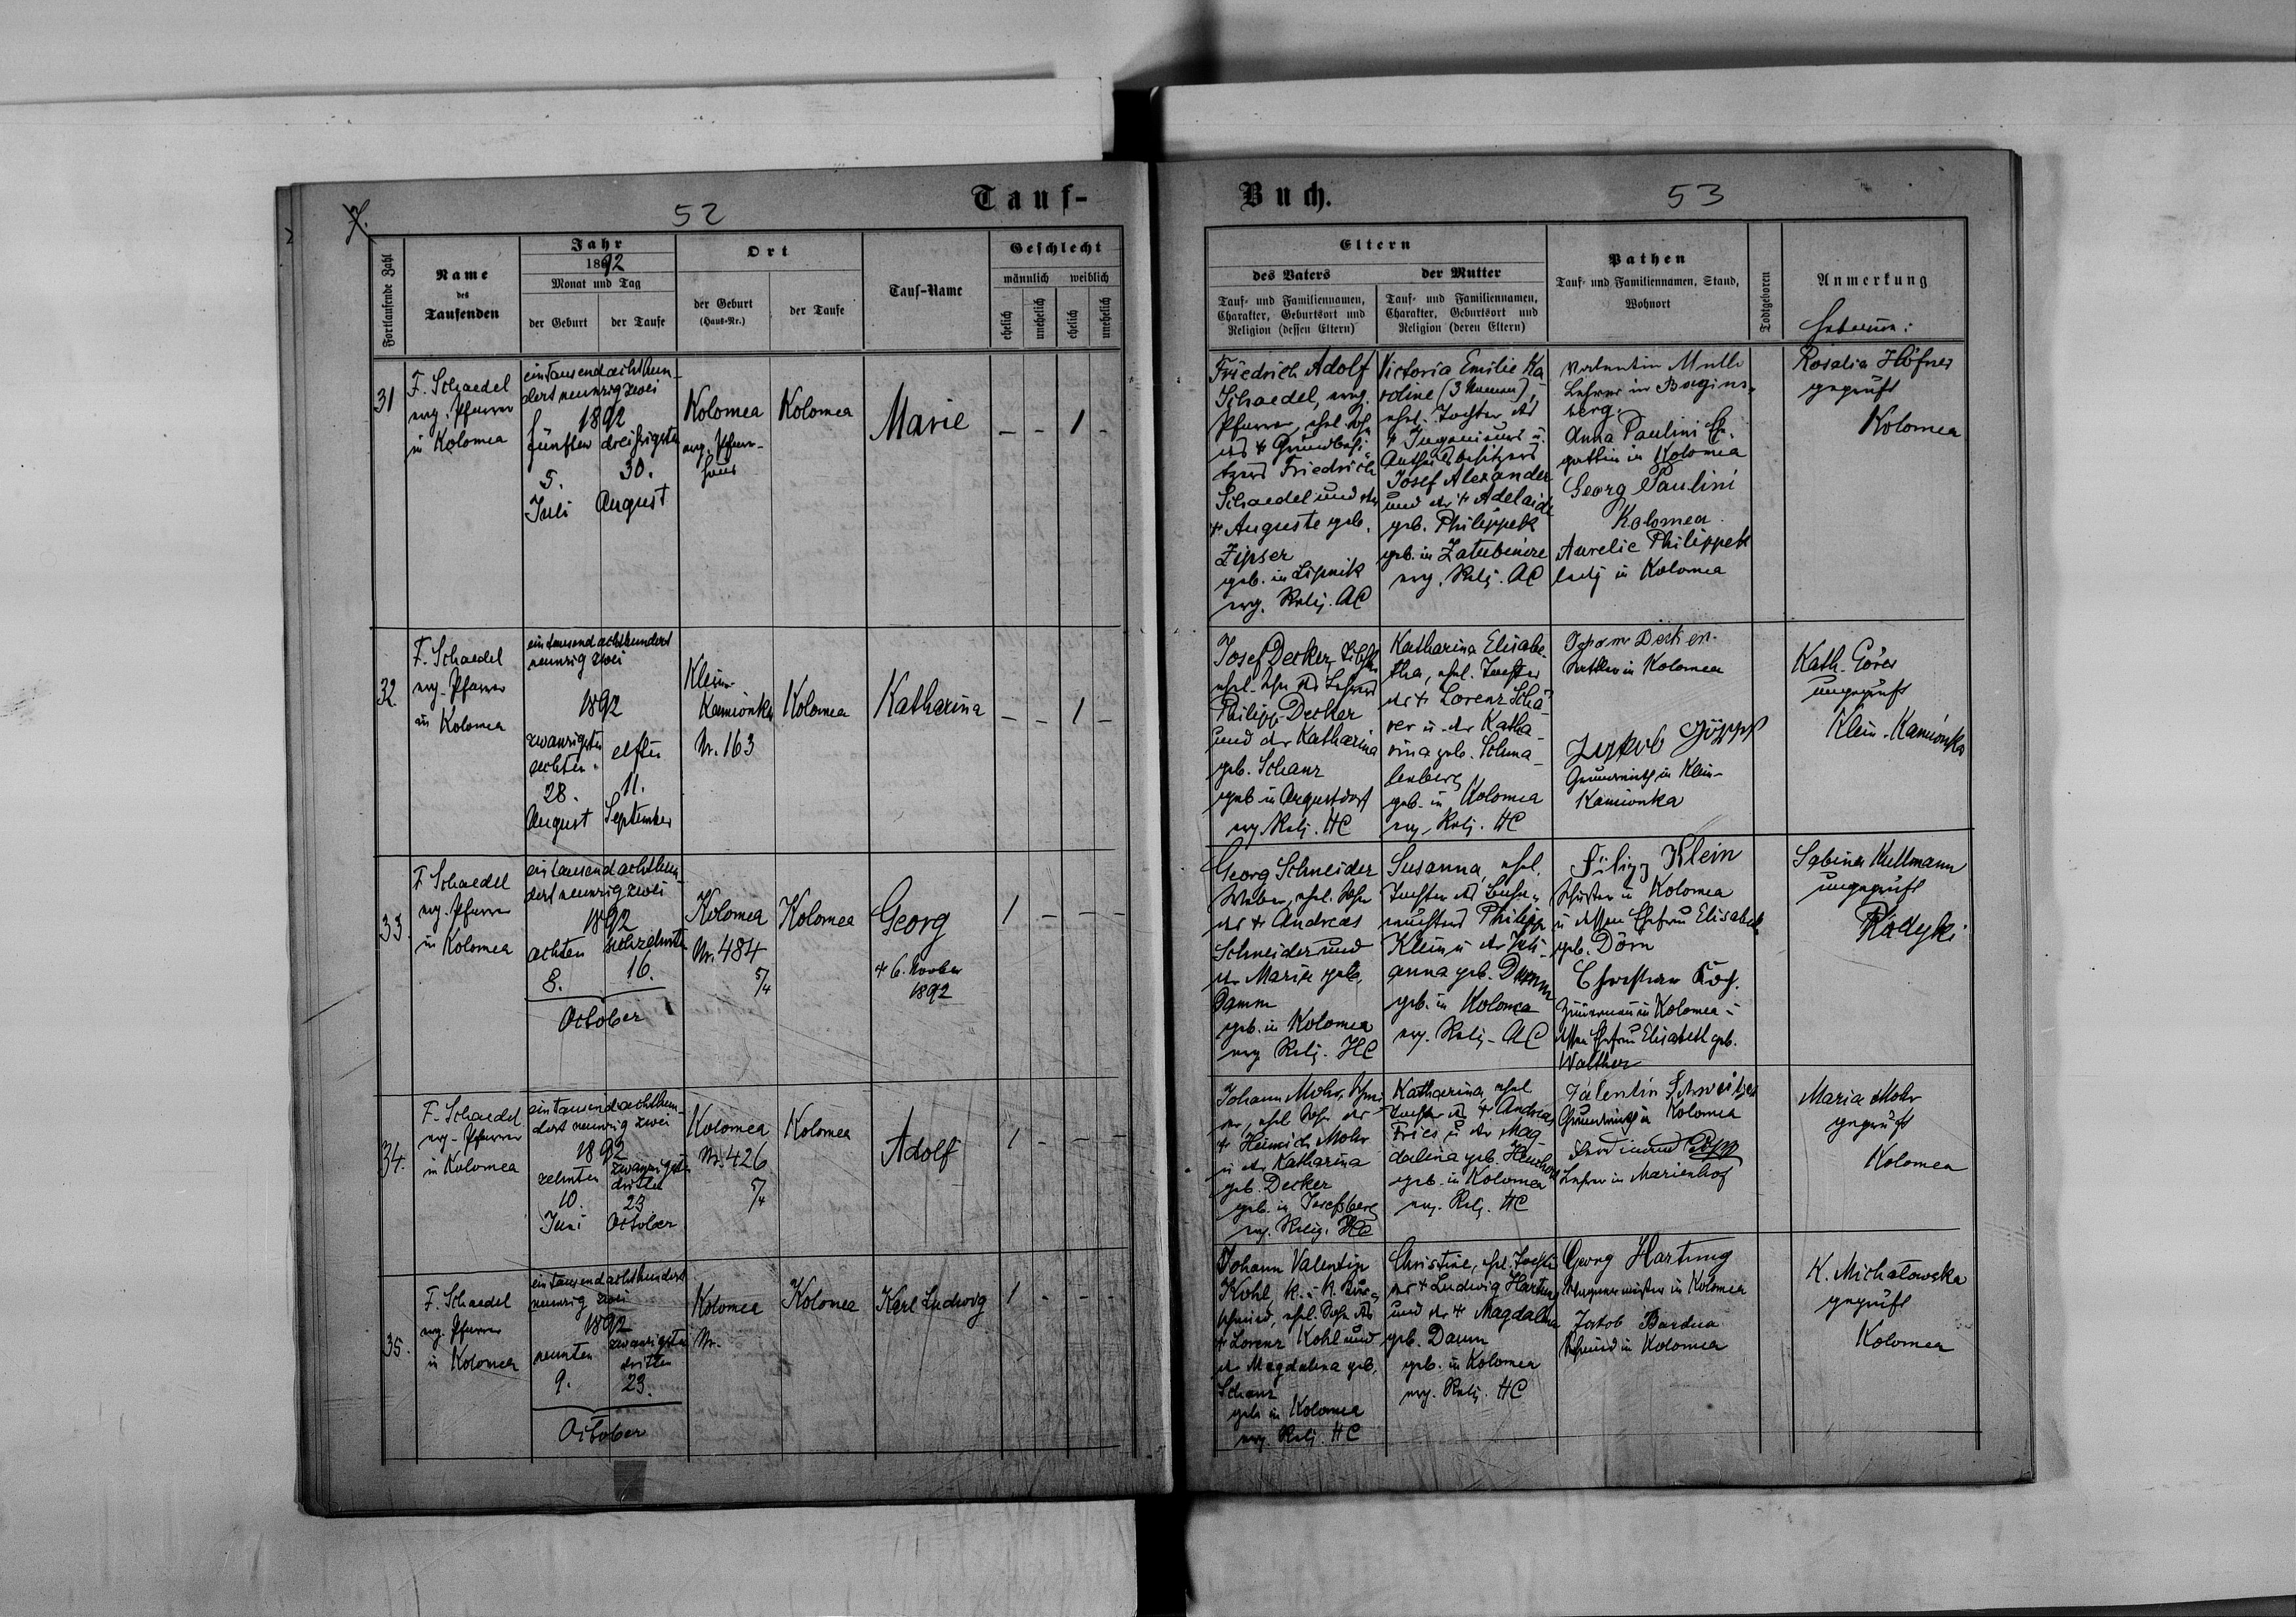 7.
52
Tauf-
Fortlaufende Zahl
Name
des
Taufenden
Jahr
1892
Monat und Tag
der Geburt
der Taufe
Ort
der Geburt
(Haus-Nr.)
der Taufe
Tauf-Name
Geschlecht
männlich
weiblich
ehelich
unehelich
ehelich
unehelich
31
F. Schaedel
evg. Pfarrer
in Kolomea
eintausendachthun-
dert neunzig zwei
1892
fünften dreißigsten
5. 30.
Juli August
Kolomea
evg. Pfarr-
haus
Kolomea
Marie
– – 1 –
32
F. Schaedel
evg. Pfarrer
in Kolomea
eintausendachthundert
neunzig zwei
1892
zwanzigsten
achten elften
28. 11.
August September
Klein-
Kamionka
Nr. 163
Kolomea
Katharina
– – 1 –
33.
F. Schaedel
evg. Pfarrer
in Kolomea
eintausendachthun-
dert neunzig zwei
1892
achten sechzehnten
8. 16.
October
Kolomea
Nr. 484
5/4
Kolomea
Georg
+ 6. Novber
1892
1 – – –
34.
F. Schaedel
evg. Pfarrer
in Kolomea
eintausendachthun-
dert neunzig zwei
1892
zehnten zwanzigsten
dritten
10. 23
Juni October
Kolomea
Nr. 426
5/4
Kolomea
Adolf
1 – – –
35.
F. Schaedel
evg. Pfarrer
in Kolomea
eintausendachthundert
neunzig zwei
1892
neunten zwanzigsten
dritten
9. 23.
October
Kolomea
Nr.
Kolomea
Karl Ludwig
1 – – –
Buch.
53
Eltern
des Vaters
Tauf- und Familiennamen,
Charakter, Geburtsort und
Religion (dessen Eltern)
der Mutter
Tauf- und Familiennamen,
Charakter, Geburtsort und
Religion (deren Eltern)
Pathen
Tauf- und Familiennamen, Stand,
Wohnort
Todtgeboren
Anmerkung
Hebamme:
Friedrich Adolf
Schaedel, evg.
Pfarrer, ehel. Sohn
des + Grundbesi-
tzers Friedrich
Schaedel und der
+ Auguste geb.
Zipser
geb. in Lipnik
evg. Relig. AC
Victoria Emilie Ka
roline (3 Namen),
ehel. Tochter des
+ Ingenieurs u.
Josef Alexander
und der + Adelaide
geb. Philippek
geb. in
evg. Relig. AC
Valentin
Lehrer in Bagins-
berg.
Anna Paulini
gattin in Kolomea
Georg Paulini
Kolomea
Aurelie Philippek
ledig in Kolomea
Rosalia Höfner
geprüft
Kolomea
Josef Decker,
ehel. Sohn des Lehrers
Philipp Decker
und der Katharina
geb. Schanz
geb. in Augustdorf
evg. Relig. HC
Katharina Elisabe-
tha, ehel. Tochter
des + Lorenz Schä-
rer u. der Katha-
rina geb. Schma-
lenberg
geb. in Kolomea
evg. Relig. HC
Johann
Sattler in Kolomea
Jakob
Grundwirth in Klein-
Kamionka
Kath. Göres
ungeprüft
Klein-Kamionka
Georg Schneider
Weber, ehel. Sohn
des + Andreas
Schneider und
der Marie geb.
Damm
geb. in Kolomea
evg. Relig. HC
Susanna, ehel.
Tochter des
Philipp
Klein u. der
anna geb. Damm
geb. in Kolomea
evg. Relig. AC
Filipp Klein
Schuster in Kolomea
u. dessen Ehefrau Elisabeth
geb. Dörn
Christian Koch.
Zimmermann in Kolomea u
dessen Ehefrau Elisabeth geb.
Walther
Sabina Kullmann
ungeprüft
Johann Mohr,
ehel. Sohn des
+ Heinrich Mohr
u. der Katharina
geb. Decker
geb. in Josefsberg
evg. Relig. HC
Katharina, ehel.
Tochter des + Andreas
Fries u. der Mag-
dalena geb.
geb. in Kolomea
evg. Relig. HC
Valentin Schweitzer
Grundwirth in Kolomea
Ferdinand
Lehrer in Marienhof
Maria Mohr
geprüft
Kolomea
Johann Valentin
Kohl
schmied, ehel. Sohn des
+ Lorenz Kohl und
der Magdalena geb.
Schanz
geb. in Kolomea
evg. Relig. HC
Christine, ehel. Tochter
des + Ludwig Hartung
und der + Magdalena
geb. Damm
geb. in Kolomea
evg. Relig. HC
Georg Hartung
Wagnermeister in Kolomea
Jakob Bardua
Schmied in Kolomea
K. Michałowska
geprüft
Kolomea